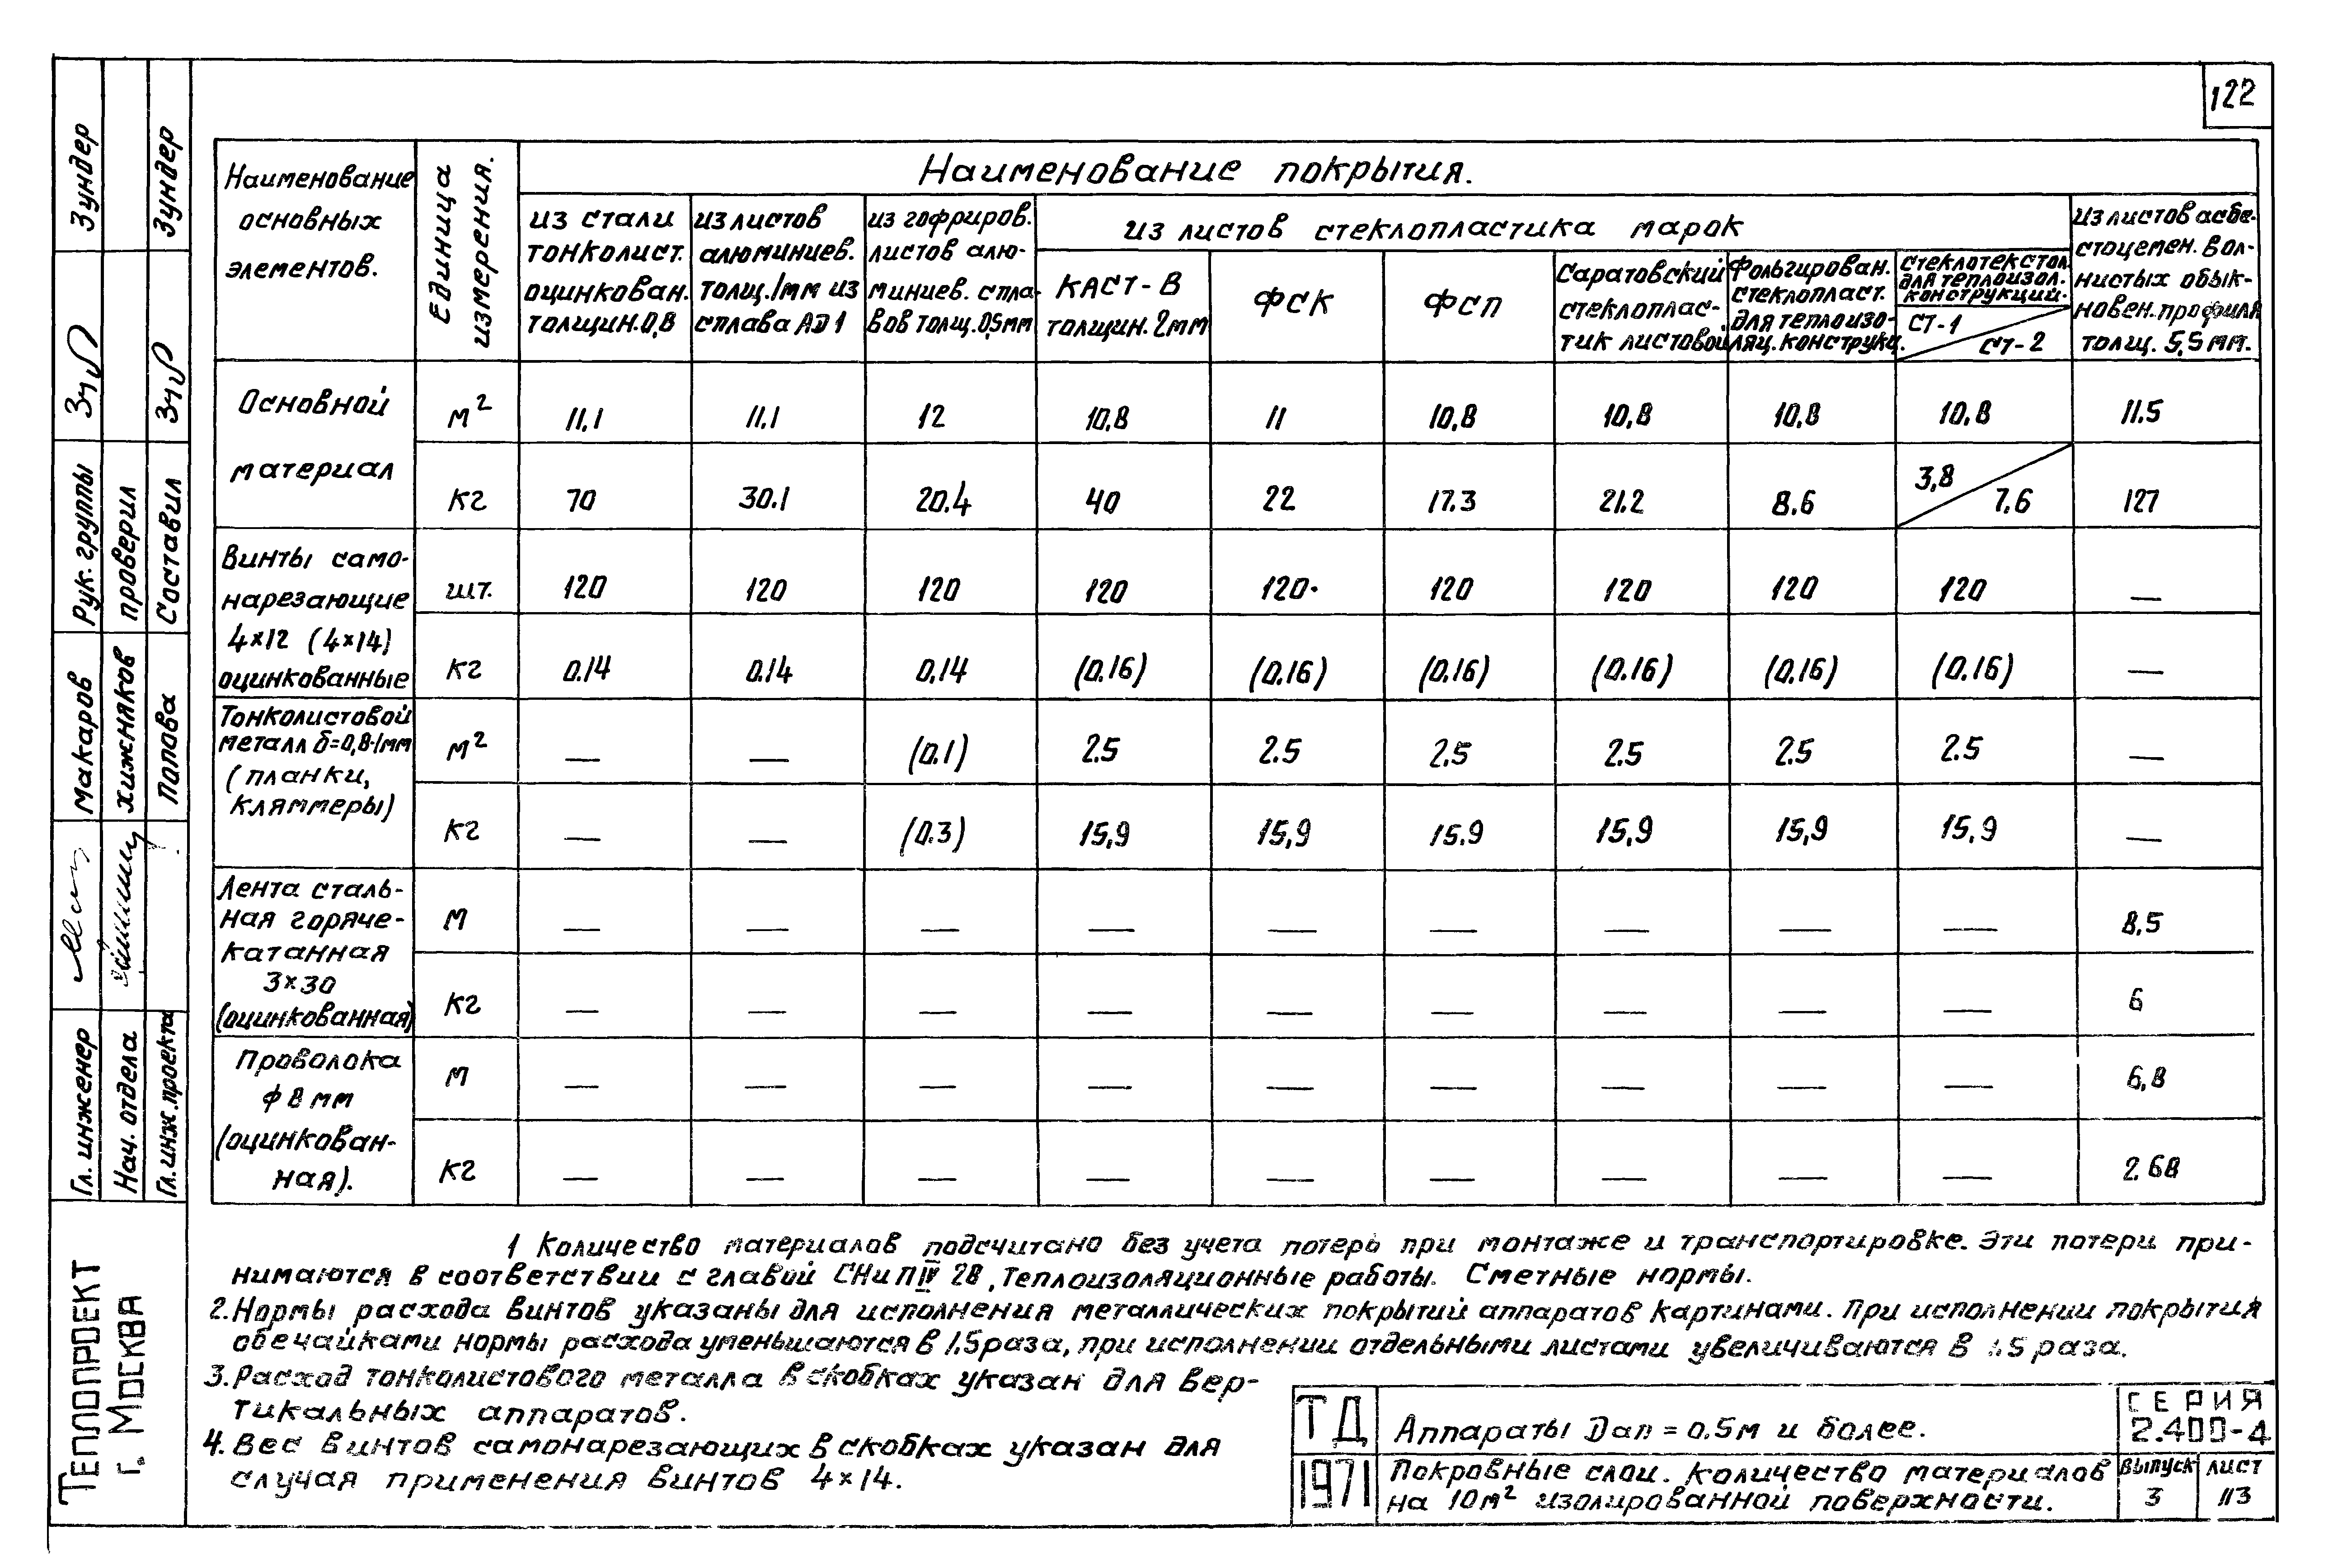 122
Наименование основных элементов.
Единица измерения.
Наименование покрытия.
из стали тонколист. оцинкован. толщин. 0,8
из листов алюминиев. толщ. 1мм из сплава АД1
из гофриров. листов алюминиев. сплавов толщ. 0,5мм
из листов стеклопластика марок
КАСТ-В толщин. 2мм
ФСК
ФСП
Саратовский стеклопластик листовой
Фольгирован. стеклопласт. для теплоизоляц. конструкц.
Стеклотекстол. для теплоизол. конструкций.
СТ-1
СТ-2
Из листов асбестоцемен. волнистых обыкновен. профиля толщ. 5,5 мм.
Основной материал
м² 11,1 11.1 12 10,8 11 10,8 10,8 10,8 10,8 11.5
кг 70 30.1 20.4 40 22 17.3 21.2 8.6 3,8 7.6 127
Винты самонарезающие 4×12 (4×14) оцинкованные
шт. 120 120 120 120 120 120 120 120 120 —
кг 0.14 0.14 0,14 (0.16) (0.16) (0.16) (0.16) (0.16) (0.16) —
Тонколистовой металл δ=0,8-1мм (планки, кляммеры)
м² — — (0.1) 2.5 2.5 2.5 2.5 2.5 2.5 —
кг — — (0.3) 15,9 15,9 15.9 15,9 15,9 15,9 —
Лента стальная горячекатанная 3×30 (оцинкованная)
м — — — — — — — — — 8.5
кг — — — — — — — — — 6
Проволока ф 8 мм (оцинкованная).
м — — — — — — — — — 6,8
кг — — — — — — — — — 2.68
1 Количество материалов подсчитано без учета потерь при монтаже и транспортировке. Эти потери при-
нимаются в соответствии с главой СНиП IV 28, Теплоизоляционные работы. Сметные нормы.
2. Нормы расхода винтов указаны для исполнения металлических покрытий аппаратов картинами. При исполнении покрытия
обечайками нормы расхода уменьшаются в 1.5 раза, при исполнении отдельными листами увеличиваются в 1.5 раза.
3. Расход тонколистового металла в скобках указан для вер-
тикальных аппаратов.
4. Вес винтов самонарезающих в скобках указан для
случая применения винтов 4×14.
ТД
1971
Аппараты Dап = 0.5м и более.
Покровные слои. Количество материалов
на 10м² изолированной поверхности.
СЕРИЯ
2.400-4
выпуск
3
лист
113
Гл. инженер
Макаров
Рук. группы
Зундер
Нач. отдела
Хижняков
проверил
Гл. инж. проекта
Попова
Составил
Зундер
ТЕПЛОПРОЕКТ
г. МОСКВА